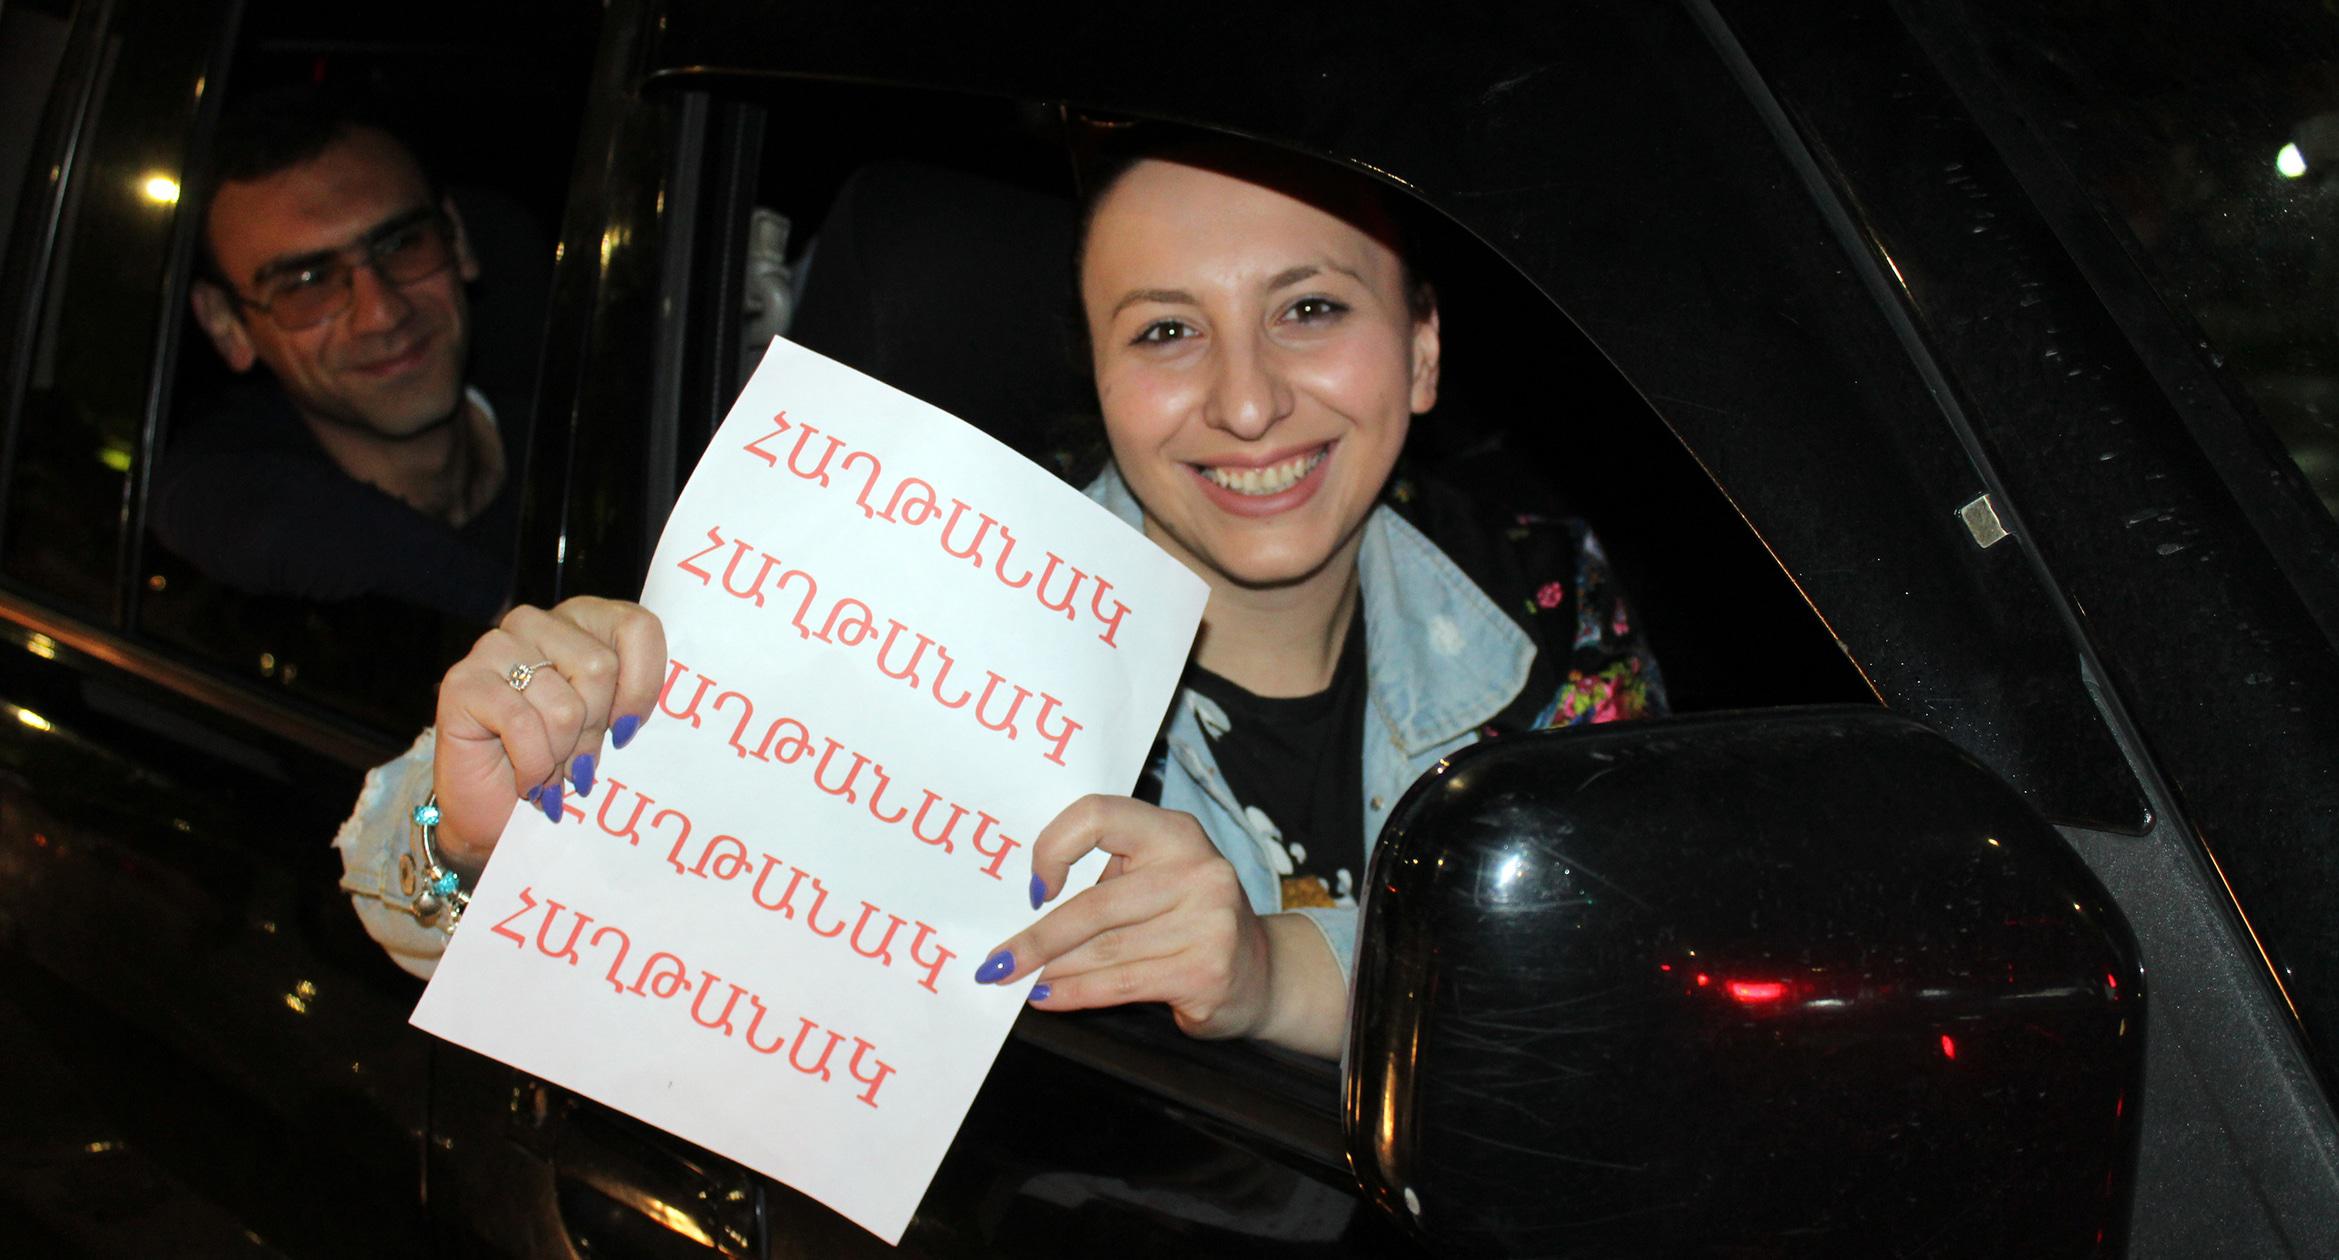 ՀԱՂԹԱՆԱԿ
ՀԱՂԹԱՆԱԿ
ԱՂԹԱՆԱԿ
ՀԱՂԹԱՆԱԿ
ՀԱՂԹԱՆԱԿ